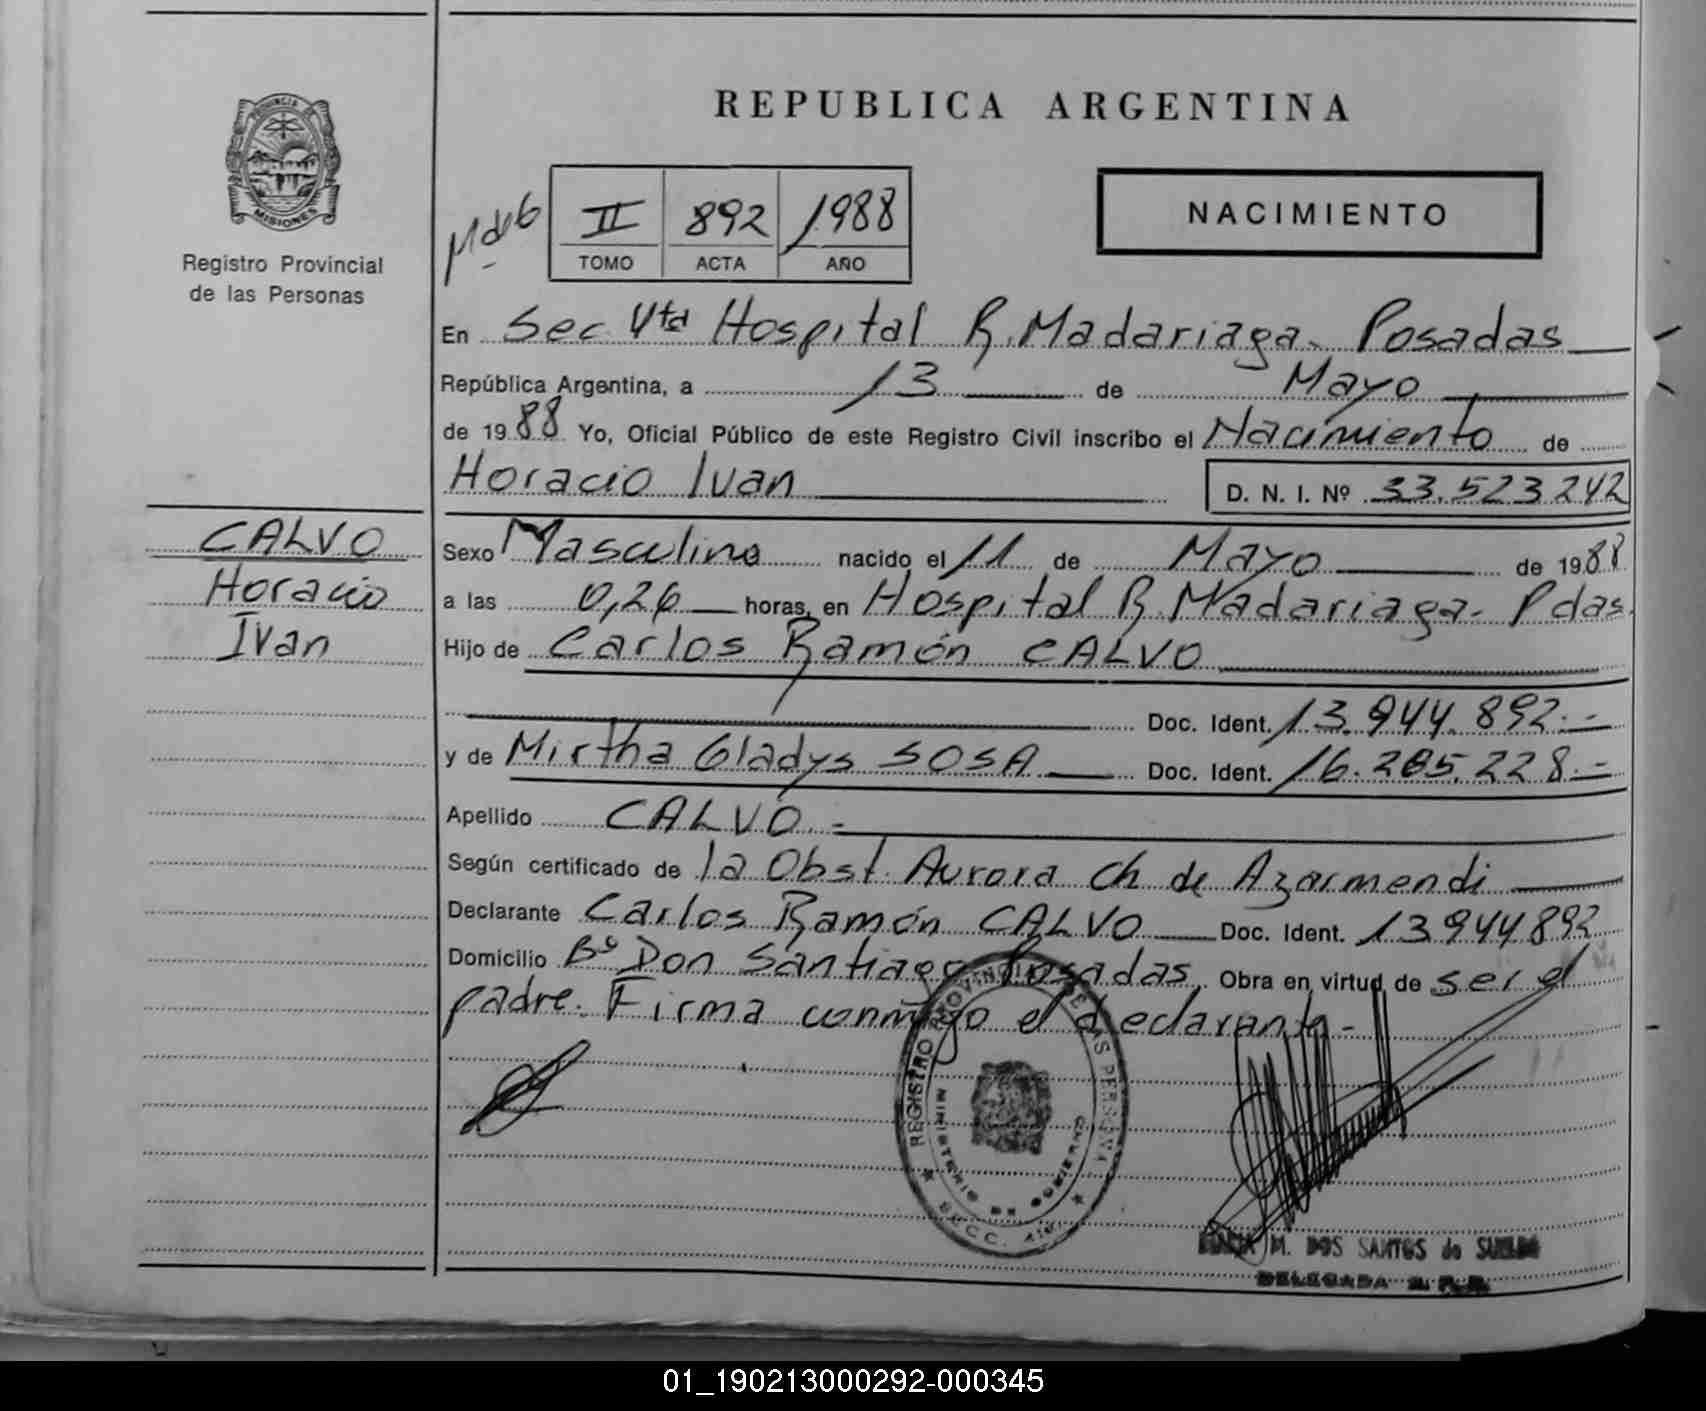 REPUBLICA ARGENTINA
PROVINCIA DE
MISIONES
Registro Provincial
de las Personas
II 892 1988
TOMO ACTA AÑO
NACIMIENTO
En Sec 4ta Hospital R. Madariaga. Posadas
República Argentina, a 13 de Mayo
de 1988 Yo, Oficial Público de este Registro Civil inscribo el Nacimiento de
Horacio Ivan D. N. I. Nº 33.523242
CALVO
Horacio
Ivan
Sexo Masculino nacido el 11 de Mayo de 1988
a las 0,26 horas, en Hospital R. Madariaga- Pdas.
Hijo de Carlos Ramón CALVO
Doc. Ident. 13.944.892.-
y de Mirtha Gladys SOSA Doc. Ident. 16.265.228.-
Apellido CALVO.-
Según certificado de la Obst. Aurora Ch de Azarmendi
Declarante Carlos Ramón CALVO Doc. Ident. 13944892
Domicilio Bº Don Santiago Posadas. Obra en virtud de ser el
padre. Firma conmigo el declarante.-
REGISTRO PROVINCIAL DE LAS PERSONAS
MINISTERIO DE GOBIERNO
SECC. 4ta
M. DOS SANTOS de
DELEGADA
01_190213000292-000345